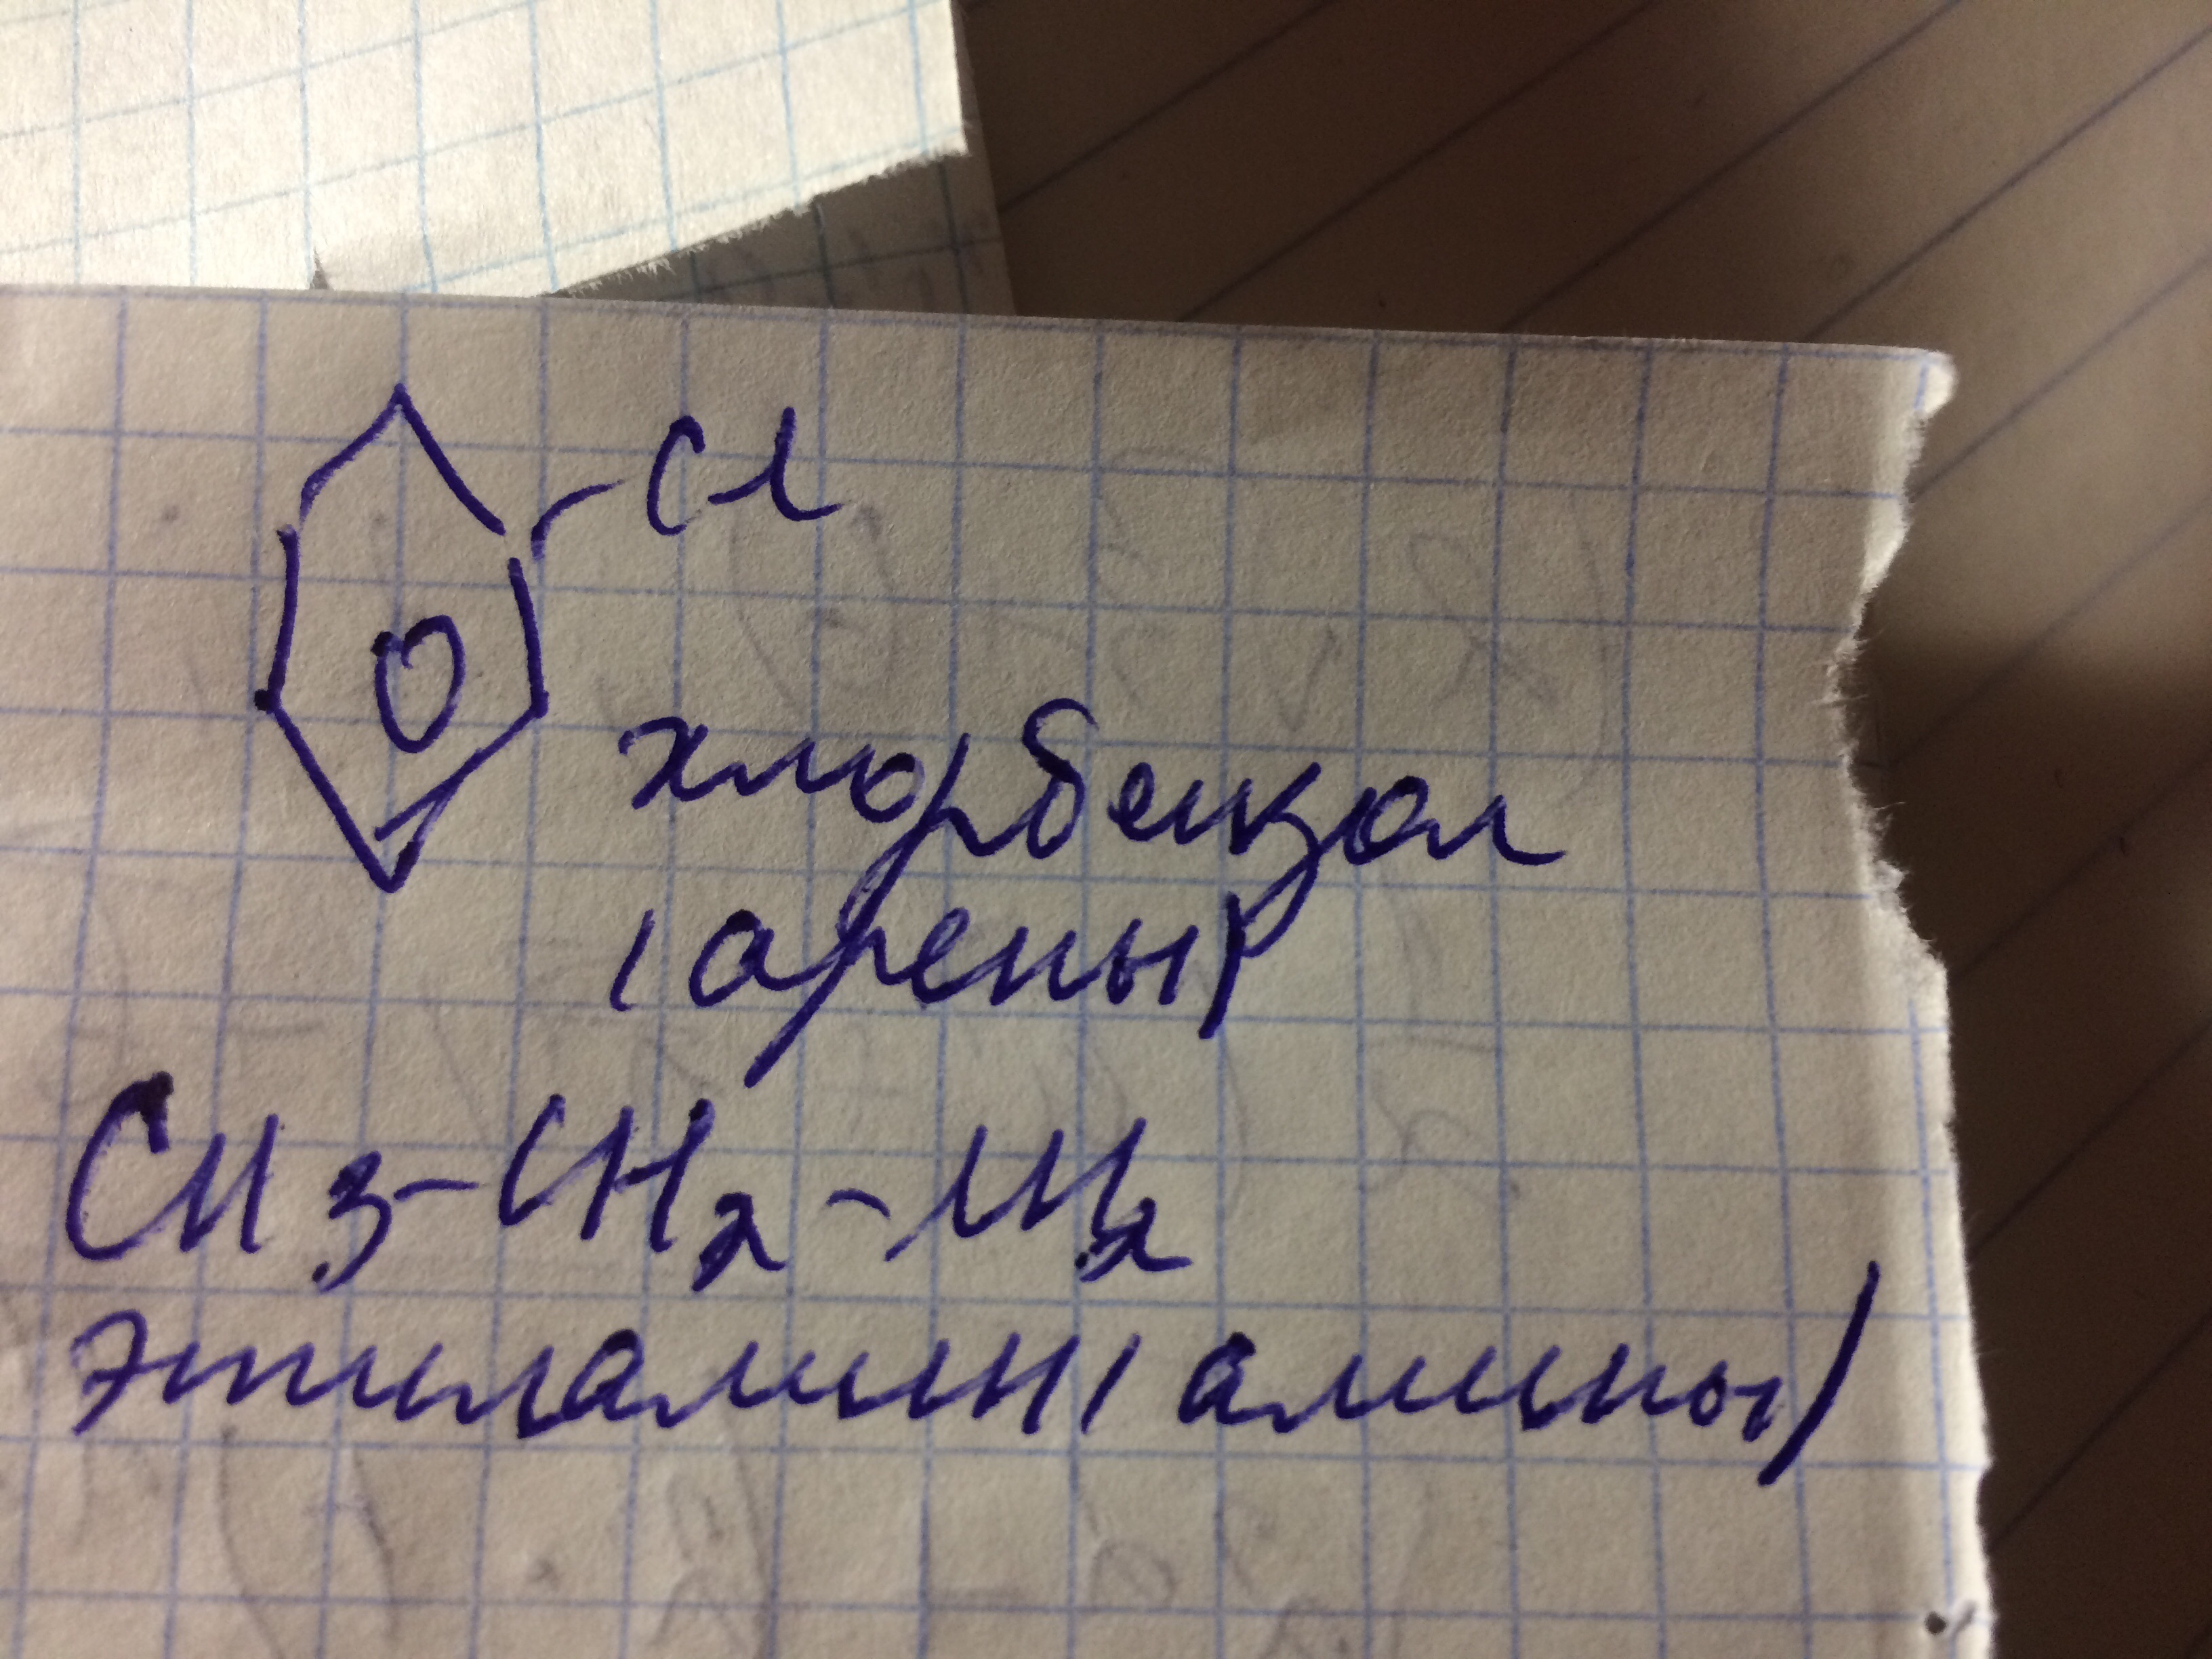 Cl
O
хлорбензол
(арены)
CH3-CH2-NH2
этиламин (амины)